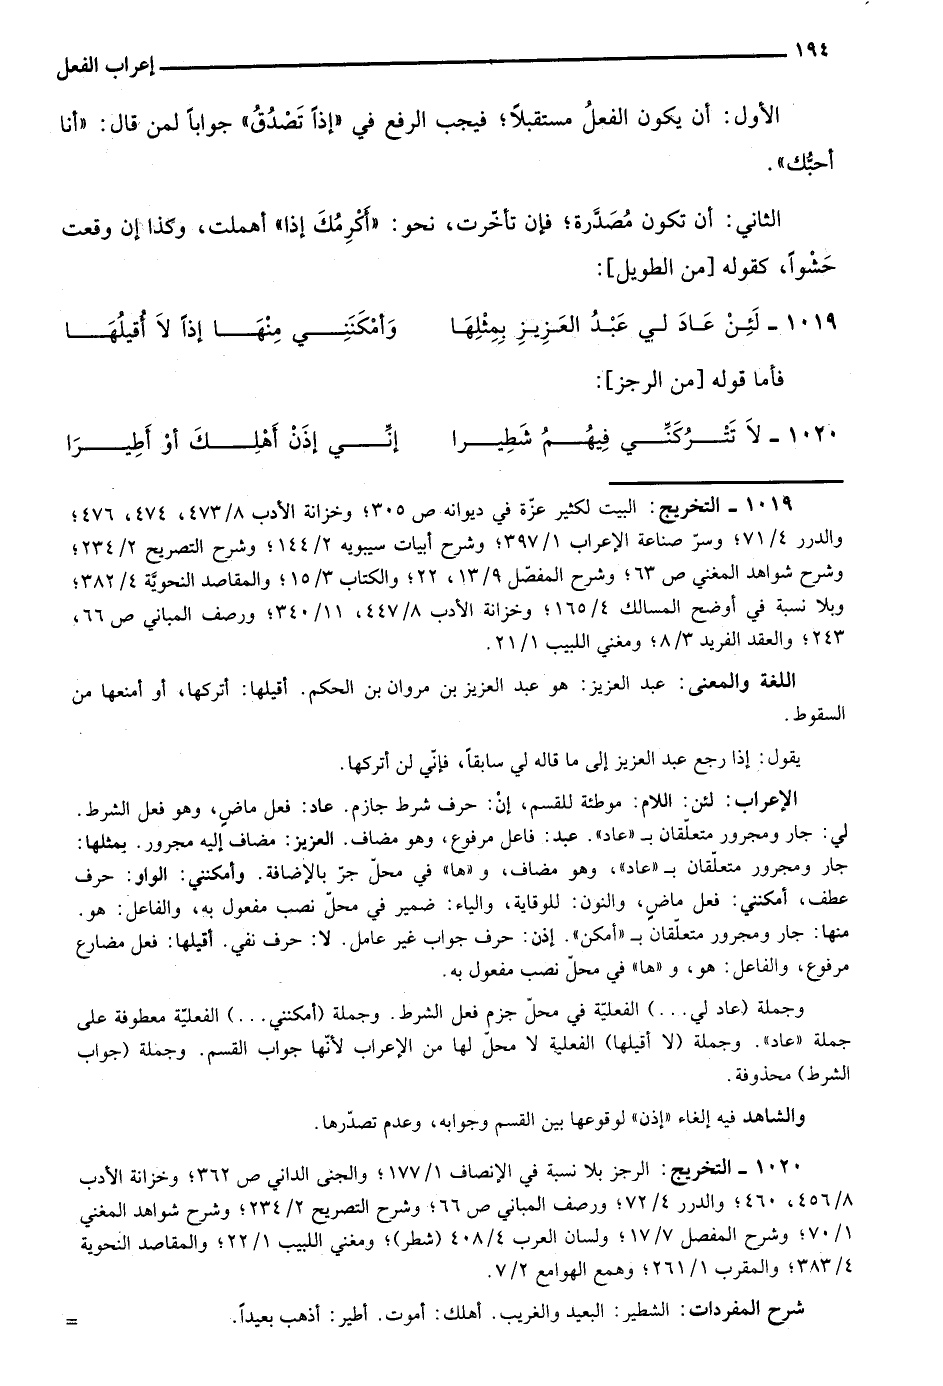 ١٩٤ إعراب الفعل
الأول: أن يكون الفعلُ مستقبلاً؛ فيجب الرفع في «إذاً تَصْدُقُ» جواباً لمن قال: «أنا
أحبُّك».
الثاني: أن تكون مُصَدَّرة؛ فإن تأخّرت، نحو: «أَكْرِمُكَ إذا» أهملت، وكذا إن وقعت
حَشْواً، كقوله [من الطويل]:
١٠١٩ ـ لَئِنْ عَادَ لي عَبْدُ العَزِيزِ بِمِثْلِهَا وَأمْكَنَنِي مِنْهَا إذاً لاَ أُقيلُهَا
فأما قوله [من الرجز]:
١٠٢٠ ـ لاَ تَتْرُكَنِّي فِيهُمُ شَطِيرا إنِّي إذَنْ أَهْلِكَ أوْ أَطِيرَا
١٠١٩ ـ التخريج: البيت لكثير عزّة في ديوانه ص ٣٠٥؛ وخزانة الأدب ٨/ ٤٧٣، ٤٧٤، ٤٧٦؛
والدرر ٤/ ٧١؛ وسرّ صناعة الإعراب ١/ ٣٩٧؛ وشرح أبيات سيبويه ٢/ ١٤٤؛ وشرح التصريح ٢/ ٢٣٤؛
وشرح شواهد المغني ص ٦٣؛ وشرح المفصّل ٩/ ١٣، ٢٢؛ والكتاب ٣/ ١٥؛ والمقاصد النحويّة ٤/ ٣٨٢؛
وبلا نسبة في أوضح المسالك ٤/ ١٦٥؛ وخزانة الأدب ٨/ ٤٤٧، ١١/ ٣٤٠؛ ورصف المباني ص ٦٦،
٢٤٣؛ والعقد الفريد ٣/ ٨؛ ومغني اللبيب ١/ ٢١.
اللغة والمعنى: عبد العزيز: هو عبد العزيز بن مروان بن الحكم. أقيلها: أتركها، أو أمنعها من
السقوط.
يقول: إذا رجع عبد العزيز إلى ما قاله لي سابقاً، فإنّي لن أتركها.
الإعراب: لئن: اللام: موطئة للقسم، إنْ: حرف شرط جازم. عاد: فعل ماضٍ، وهو فعل الشرط.
لي: جار ومجرور متعلّقان بـ «عاد». عبد: فاعل مرفوع، وهو مضاف. العزيز: مضاف إليه مجرور. بمثلها:
جار ومجرور متعلّقان بـ «عاد»، وهو مضاف، و «ها» في محلّ جرّ بالإضافة. وأمكنني: الواو: حرف
عطف، أمكنني: فعل ماضٍ، والنون: للوقاية، والياء: ضمير في محلّ نصب مفعول به، والفاعل: هو.
منها: جار ومجرور متعلّقان بـ «أمكن». إذن: حرف جواب غير عامل. لا: حرف نفي. أقيلها: فعل مضارع
مرفوع، والفاعل: هو، و «ها» في محلّ نصب مفعول به.
وجملة (عاد لي...) الفعليّة في محلّ جزم فعل الشرط. وجملة (أمكنني...) الفعليّة معطوفة على
جملة «عاد». وجملة (لا أقيلها) الفعلية لا محلّ لها من الإعراب لأنّها جواب القسم. وجملة (جواب
الشرط) محذوفة.
والشاهد فيه إلغاء «إذن» لوقوعها بين القسم وجوابه، وعدم تصدّرها.
١٠٢٠ ـ التخريج: الرجز بلا نسبة في الإنصاف ١/ ١٧٧؛ والجنى الداني ص ٣٦٢؛ وخزانة الأدب
٨/ ٤٥٦، ٤٦٠؛ والدرر ٤/ ٧٢؛ ورصف المباني ص ٦٦؛ وشرح التصريح ٢/ ٢٣٤؛ وشرح شواهد المغني
١/ ٧٠؛ وشرح المفصل ٧/ ١٧؛ ولسان العرب ٤/ ٤٠٨ (شطر)؛ ومغني اللبيب ١/ ٢٢؛ والمقاصد النحوية
٤/ ٣٨٣؛ والمقرب ١/ ٢٦١؛ وهمع الهوامع ٢/ ٧.
شرح المفردات: الشطير: البعيد والغريب. أهلك: أموت. أطير: أذهب بعيداً. =